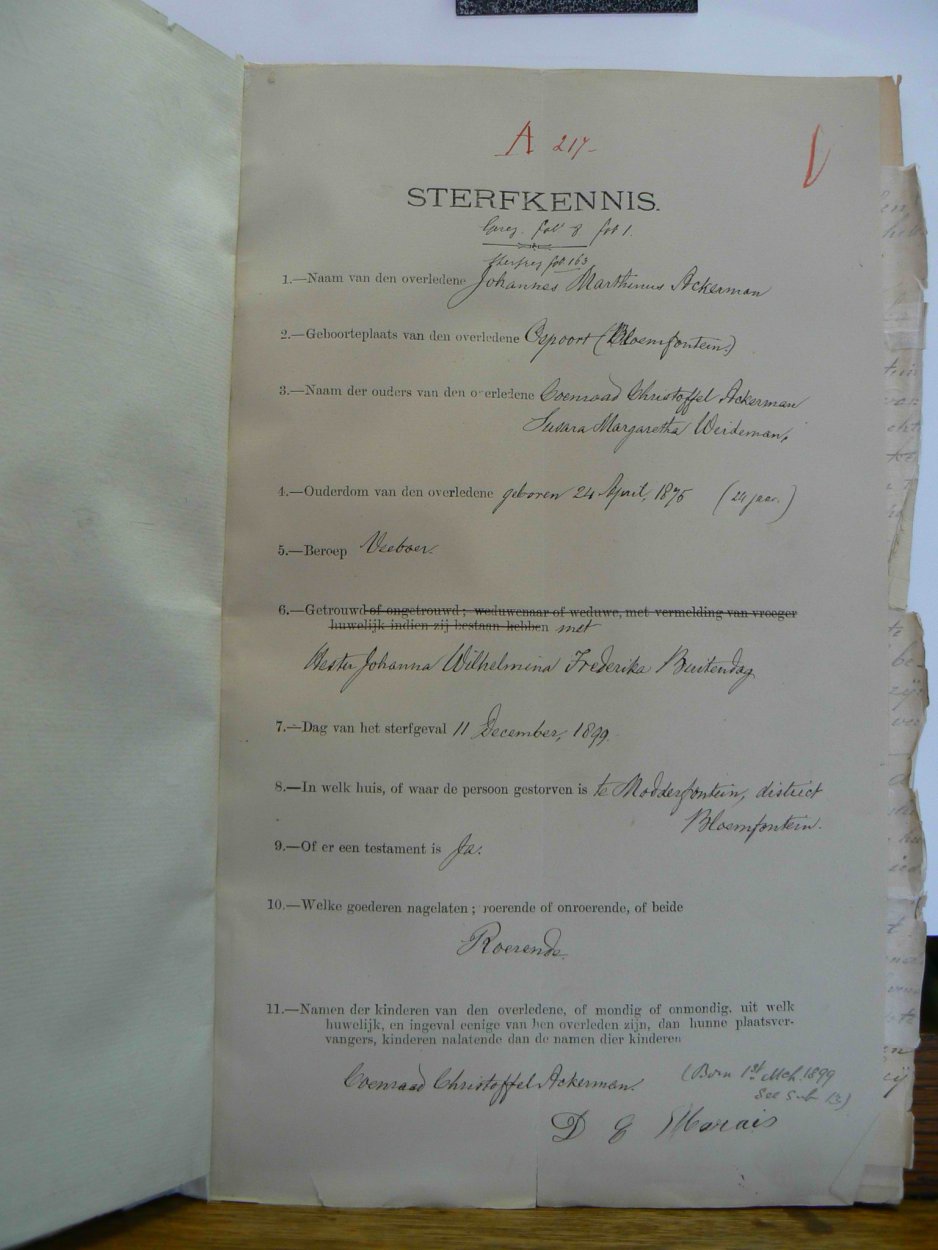 A 217-
STERFKENNIS.
fol 8 fol 1.
fol 163
1.—Naam van den overledene Johannes Marthinus Ackerman
2.—Geboorteplaats van den overledene Ospoort (Bloemfontein)
3.—Naam der ouders van den overledene Coenraad Christoffel Ackerman
Susara Margaretha Weideman,
4.—Ouderdom van den overledene geboren 24 April, 1875 (24 jaar)
5.—Beroep Veeboer.
6.—Getrouwd of ongetrouwd; weduwenaar of weduwe, met vermelding van vroeger
huwelijk indien zij bestaan hebben met
Hester Johanna Wilhelmina Frederika Buitendag
7.—Dag van het sterfgeval 11 December, 1899.
8.—In welk huis, of waar de persoon gestorven is te Modderfontein, district
Bloemfontein.
9.—Of er een testament is Ja.
10.—Welke goederen nagelaten; roerende of onroerende, of beide
Roerende.
11.—Namen der kinderen van den overledene, of mondig of onmondig, uit welk
huwelijk, en ingeval eenige van hen overleden zijn, dan hunne plaatsver-
vangers, kinderen nalatende dan de namen dier kinderen
Coenraad Christoffel Ackerman. (Born 1st Mch. 1899
See sub 13)
D E Marais